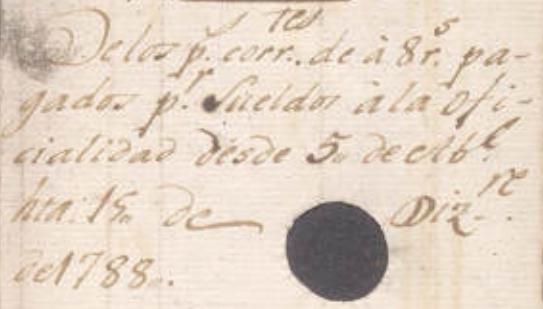 De los p.s corr.tes de à 8 r.s pa-
gados p.r Sueldos à la ofi-
cialidad desde 5 de Ab.l
hta. 15 de Diz.re
de 1788.